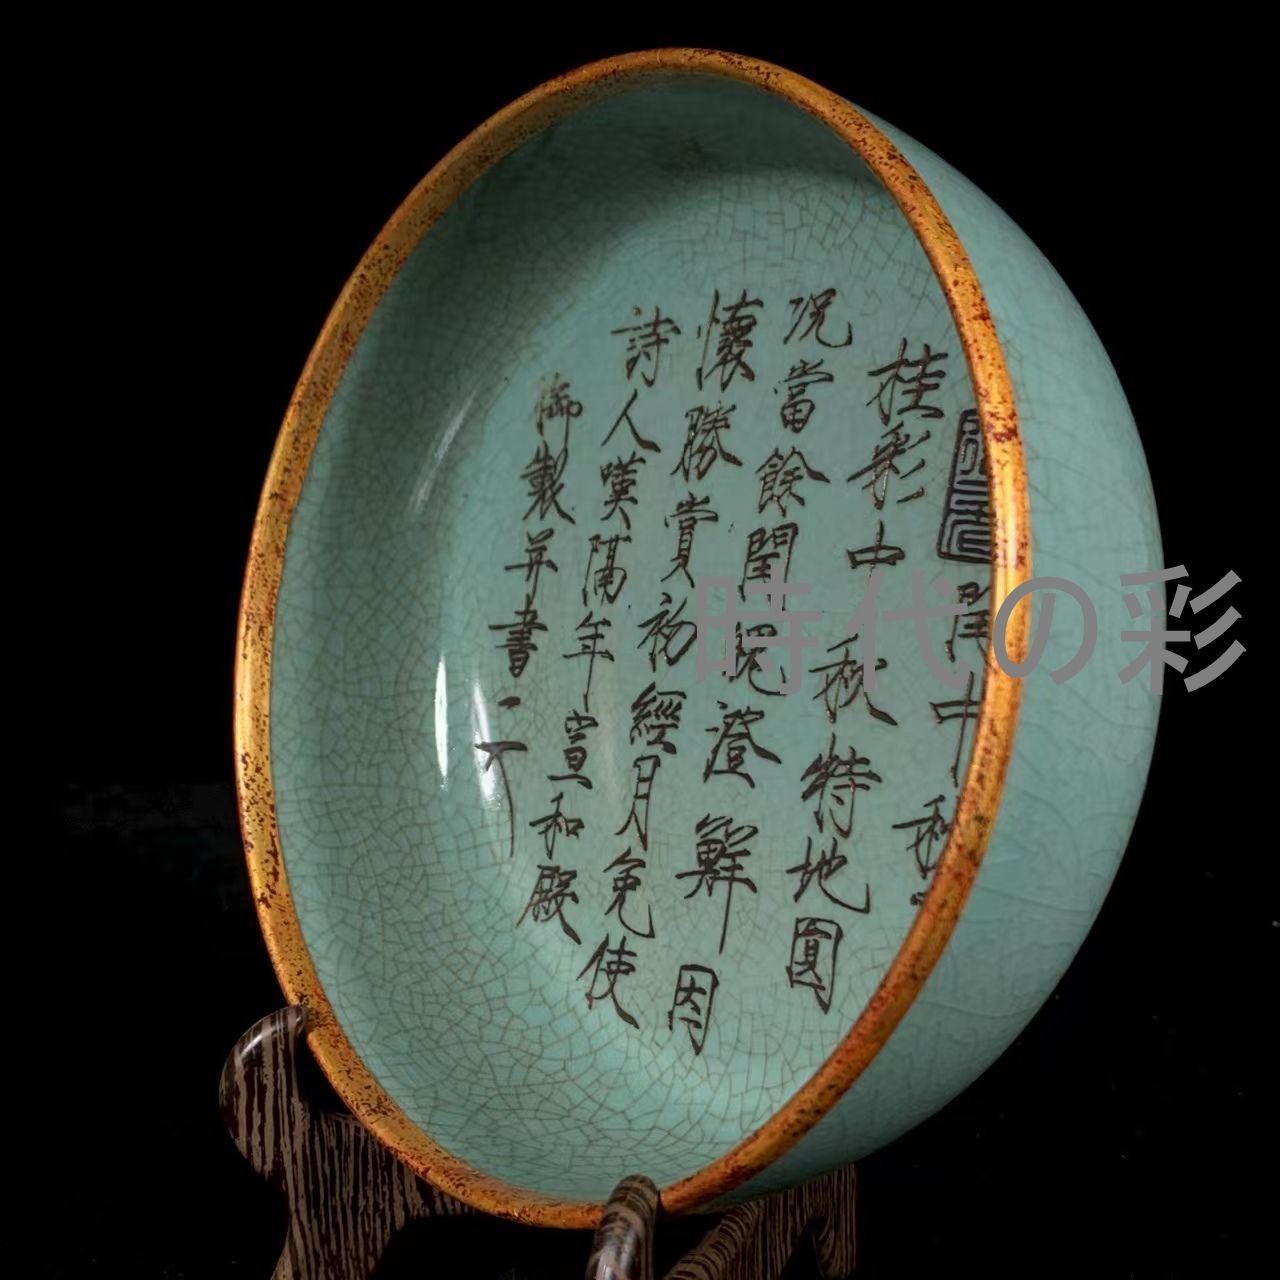 閏中秋
桂彩中秋特地圓
况當餘閏魄澄鮮因
懷勝賞初經月免使
詩人嘆隔年宣和殿
御製并書
時代の彩